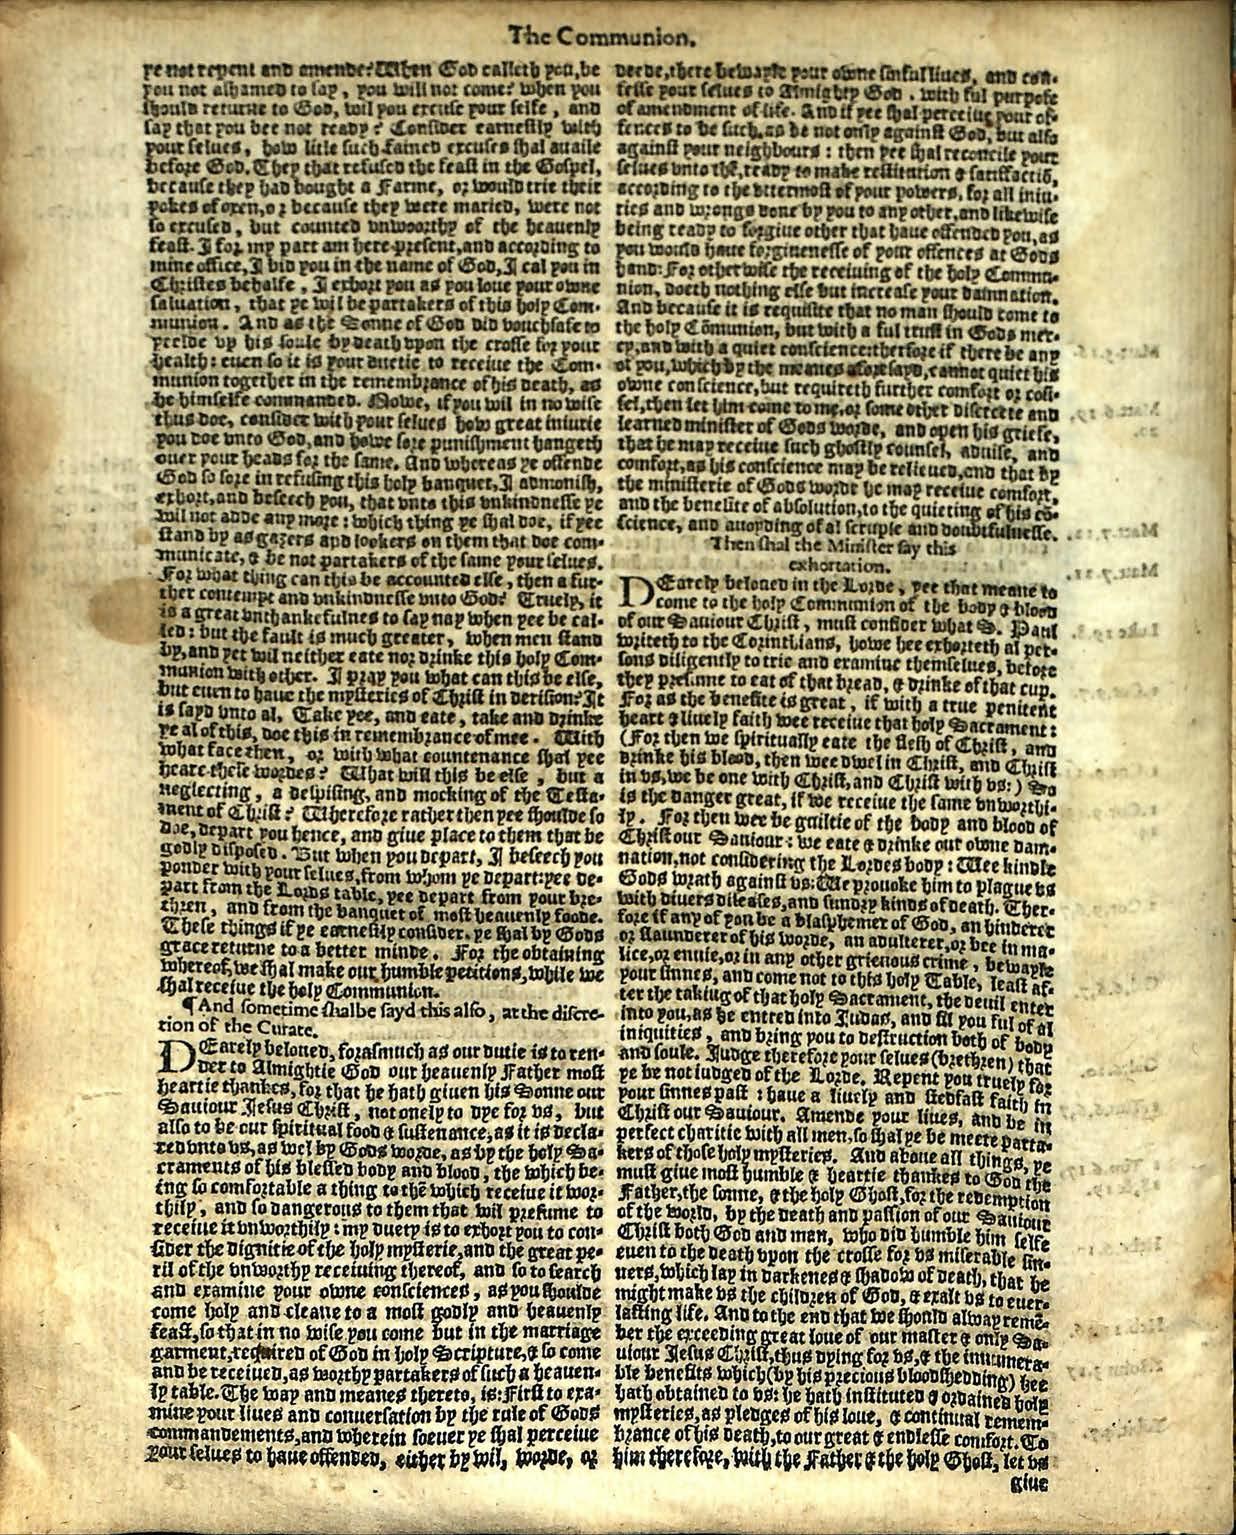 The Communion.
ye not repent and amende? When God calleth you, be
you not ashamed to say, you will not come? when you
should returne to God, wil you excuse your selfe, and
say that you bee not ready? Consider earnestly with
your selues, how litle such fained excuses shal auaile
before God. They that refused the feast in the Gospel,
because they had bought a Farme, or would trie their
yokes of oxen, or because they were maried, were not
so excused, but counted vnwoorthy of the heauenly
feast. I for my part am here present, and according to
mine office, I bid you in the name of God, I cal you in
Christes behalfe, I exhort you as you loue your owne
saluation, that ye wil be partakers of this holy Com-
munion. And as the Sonne of God did vouchsafe to
yeelde vp his soule by death vpon the crosse for your
health: euen so it is your duetie to receiue the Com-
munion together in the remembrance of his death, as
he himselfe commanded. Nowe, if you wil in no wise
thus doe, consider with your selues how great iniurie
you doe vnto God, and howe sore punishment hangeth
ouer your heads for the same. And whereas ye offende
God so sore in refusing this holy banquet, I admonish,
exhort, and beseech you, that vnto this vnkindnesse ye
wil not adde any more: which thing ye shal doe, if yee
stand by as gazers and lookers on them that doe com-
municate, & be not partakers of the same your selues.
For what thing can this be accounted else, then a fur-
ther contempt and vnkindnesse vnto God? Truely, it
is a great vnthankefulnes to say nay when yee be cal-
led: but the fault is much greater, when men stand
by, and yet wil neither eate nor drinke this holy Com-
munion with other. I pray you what can this be else,
but euen to haue the mysteries of Christ in derision? It
is sayd vnto al, Take yee, and eate, take and drinke
ye al of this, doe this in remembrance of mee. With
what face then, or with what countenance shal yee
heare these wordes? What will this be else, but a
neglecting, a despising, and mocking of the Testa-
ment of Christ? Wherefore rather then yee shoulde so
doe, depart you hence, and giue place to them that be
godly disposed. But when you depart, I beseech you
ponder with your selues, from whom ye depart: yee de-
part from the Lords table, yee depart from your bre-
thren, and from the banquet of most heauenly foode.
These things if ye earnestly consider, ye shal by Gods
grace returne to a better minde. For the obtaining
whereof, we shal make our humble petitions, while we
shal receiue the holy Communion.
¶ And sometime shalbe sayd this also, at the discre-
tion of the Curate.
DEarely beloued, forasmuch as our dutie is to ren-
der to Almightie God our heauenly Father most
heartie thankes, for that he hath giuen his Sonne our
Sauiour Jesus Christ, not onely to dye for vs, but
also to be our spiritual food & sustenance, as it is decla-
red vnto vs, as wel by Gods worde, as by the holy Sa-
craments of his blessed body and blood, the which be-
ing so comfortable a thing to thẽ which receiue it wor-
thily, and so dangerous to them that wil presume to
receiue it vnworthily: my duety is to exhort you to con-
sider the dignitie of the holy mysterie, and the great pe-
ril of the vnworthy receiuing thereof, and so to search
and examine your owne consciences, as you shoulde
come holy and cleane to a most godly and heauenly
feast, so that in no wise you come but in the marriage
garment, required of God in holy Scripture, & so come
and be receiued, as worthy partakers of such a heauen-
ly table. The way and meanes thereto, is: First to exa-
mine your liues and conuersation by the rule of Gods
commandements, and wherein soeuer ye shal perceiue
your selues to haue offended, either by wil, worde, or
deede, there bewayle your owne sinful liues, and con-
fesse your selues to Almighty God, with ful purpose
of amendment of life. And if yee shal perceiue your of-
fences to be such, as be not only against God, but also
against your neighbours: then yee shal reconcile your
selues vnto thẽ, ready to make restitution & satisfactiõ,
according to the vttermost of your powers, for all iniu-
ries and wrongs done by you to any other, and likewise
being ready to forgiue other that haue offended you, as
you would haue forgiuenesse of your offences at Gods
hand: For otherwise the receiuing of the holy Commu-
nion, doeth nothing else but increase your damnation.
And because it is requisite that no man should come to
the holy Cõmunion, but with a ful trust in Gods mer-
cy, and with a quiet conscience: therfore if there be any
of you, which by the meanes afore sayd, cannot quiet his
owne conscience, but requireth further comfort or coũ-
sel, then let him come to me, or some other discreete and
learned minister of Gods worde, and open his griefe,
that he may receiue such ghostly counsel, aduise, and
comfort, as his conscience may be relieued, and that by
the ministerie of Gods worde he may receiue comfort,
and the benefite of absolution, to the quieting of his cõ-
science, and auoyding of al scruple and doubtfulnesse.
Then shal the Minister say this
exhortation.
DEarely beloued in the Lorde, yee that meane to
come to the holy Communion of the body & blood
of our Sauiour Christ, must consider what S. Paul
writeth to the Corinthians, howe hee exhorteth al per-
sons diligently to trie and examine themselues, before
they presume to eat of that bread, & drinke of that cup.
For as the benefite is great, if with a true penitent
heart & liuely faith wee receiue that holy Sacrament:
(For then we spiritually eate the flesh of Christ, and
drinke his blood, then wee dwel in Christ, and Christ
in vs, we be one with Christ, and Christ with vs:) So
is the danger great, if we receiue the same vnworthi-
ly. For then wee be guiltie of the body and blood of
Christ our Sauiour: we eate & drinke our owne dam-
nation, not considering the Lordes body: Wee kindle
Gods wrath against vs: We prouoke him to plague vs
with diuers diseases, and sundry kinds of death. Ther-
fore if any of you be a blasphemer of God, an hinderer
or slaunderer of his worde, an adulterer, or bee in ma-
lice, or enuie, or in any other grieuous crime, bewayle
your sinnes, and come not to this holy Table, least af-
ter the taking of that holy Sacrament, the deuil enter
into you, as he entred into Judas, and fil you ful of al
iniquities, and bring you to destruction both of body
and soule. Judge therefore your selues (brethren) that
ye be not iudged of the Lorde. Repent you truely for
your sinnes past: haue a liuely and stedfast faith in
Christ our Sauiour. Amende your liues, and be in
perfect charitie with all men, so shal ye be meete parta-
kers of those holy mysteries. And aboue all things, ye
must giue most humble & heartie thankes to God the
Father, the sonne, & the holy Ghost, for the redemption
of the world, by the death and passion of our Sauiour
Christ both God and man, who did humble him selfe
euen to the death vpon the crosse for vs miserable sin-
ners, which lay in darkenes & shadow of death, that he
might make vs the children of God, & exalt vs to euer-
lasting life. And to the end that we should alway remẽ-
ber the exceeding great loue of our master & only Sa-
uiour Jesus Christ, thus dying for vs, & the innumera-
ble benefits which (by his precious bloodshedding) hee
hath obtained to vs: he hath instituted & ordained holy
mysteries, as pledges of his loue, & continual remem-
brance of his death, to our great & endlesse comfort. To
him therefore, with the Father & the holy Ghost, let vs
giue